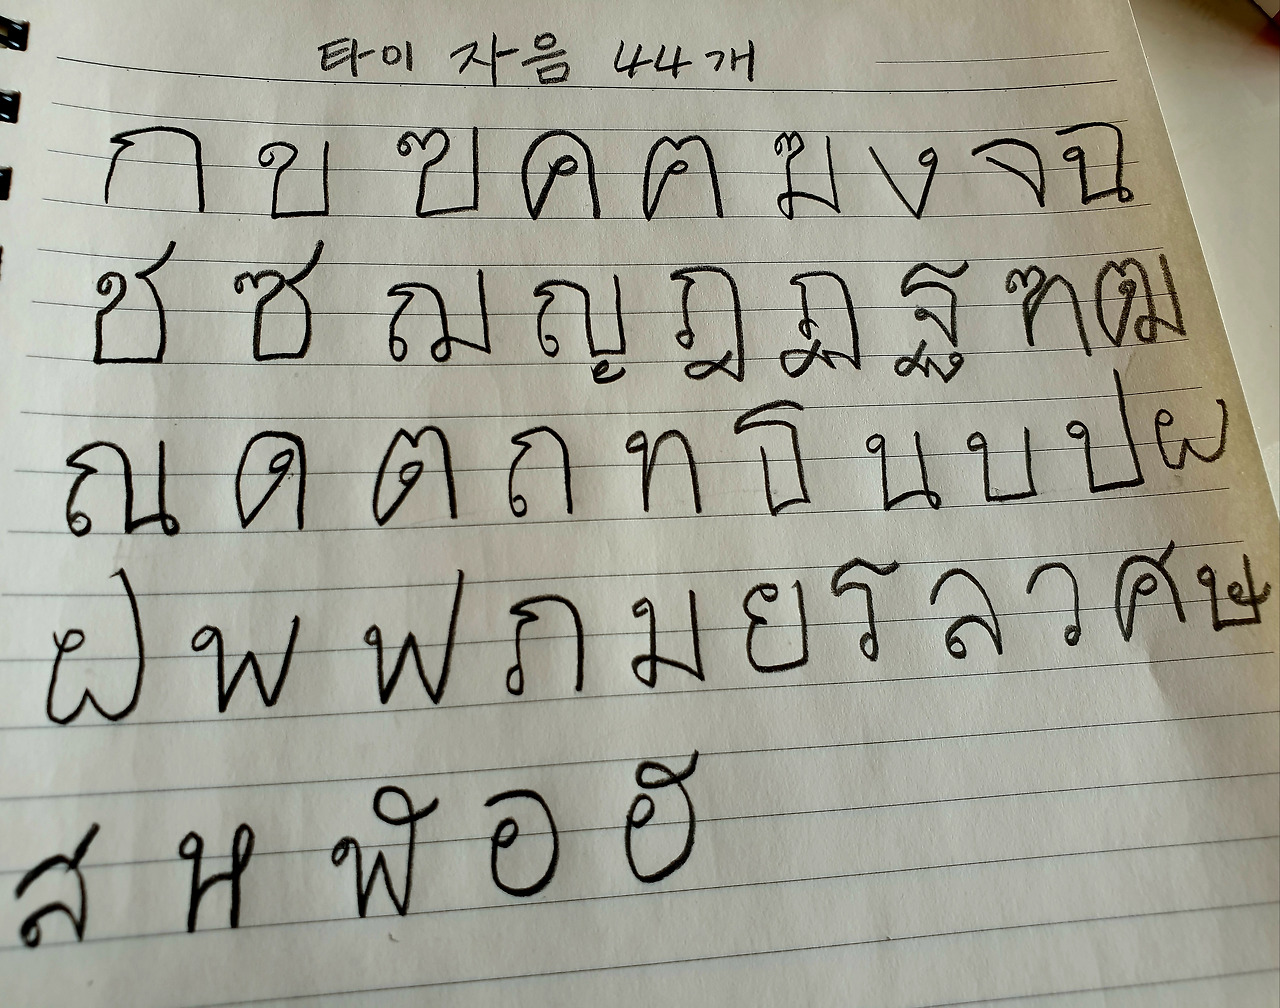 타이 자음 44개
ก ข ฃ ค ฅ ฆ ง จ ฉ
ช ซ ฌ ญ ฎ ฏ ฐ ฑ ฒ
ณ ด ต ถ ท ธ น บ ป ผ
ฝ พ ฟ ภ ม ย ร ล ว ศ ษ
ส ห ฬ อ ฮ